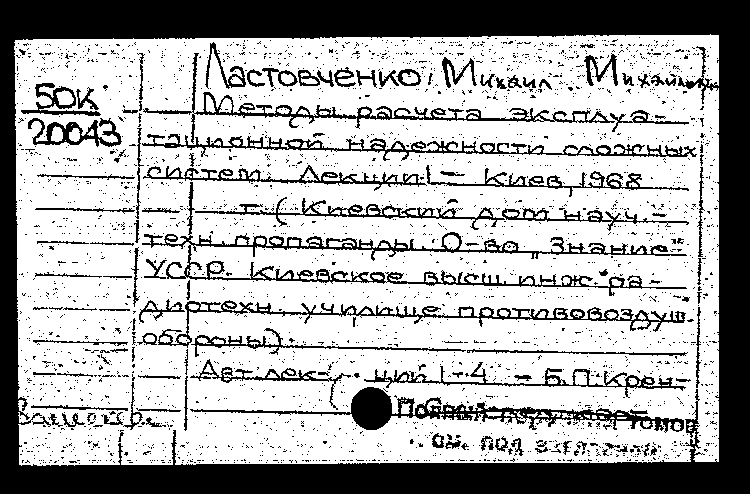 Ластовченко, Михаил Михайлович
БОК
20043
Методы расчета эксплуа-
тационной надежности сложных
систем. Лекции 1 — Киев, 1968
т. (Киевский дом науч.-
техн. пропаганды. О-во „Знание"
УССР. Киевское высш. инж. ра-
диотехн. училище противовоздуш.
обороны).
Авт. лек- ций 1-4 - Б.П. Крен-
томов
см. под заглавием